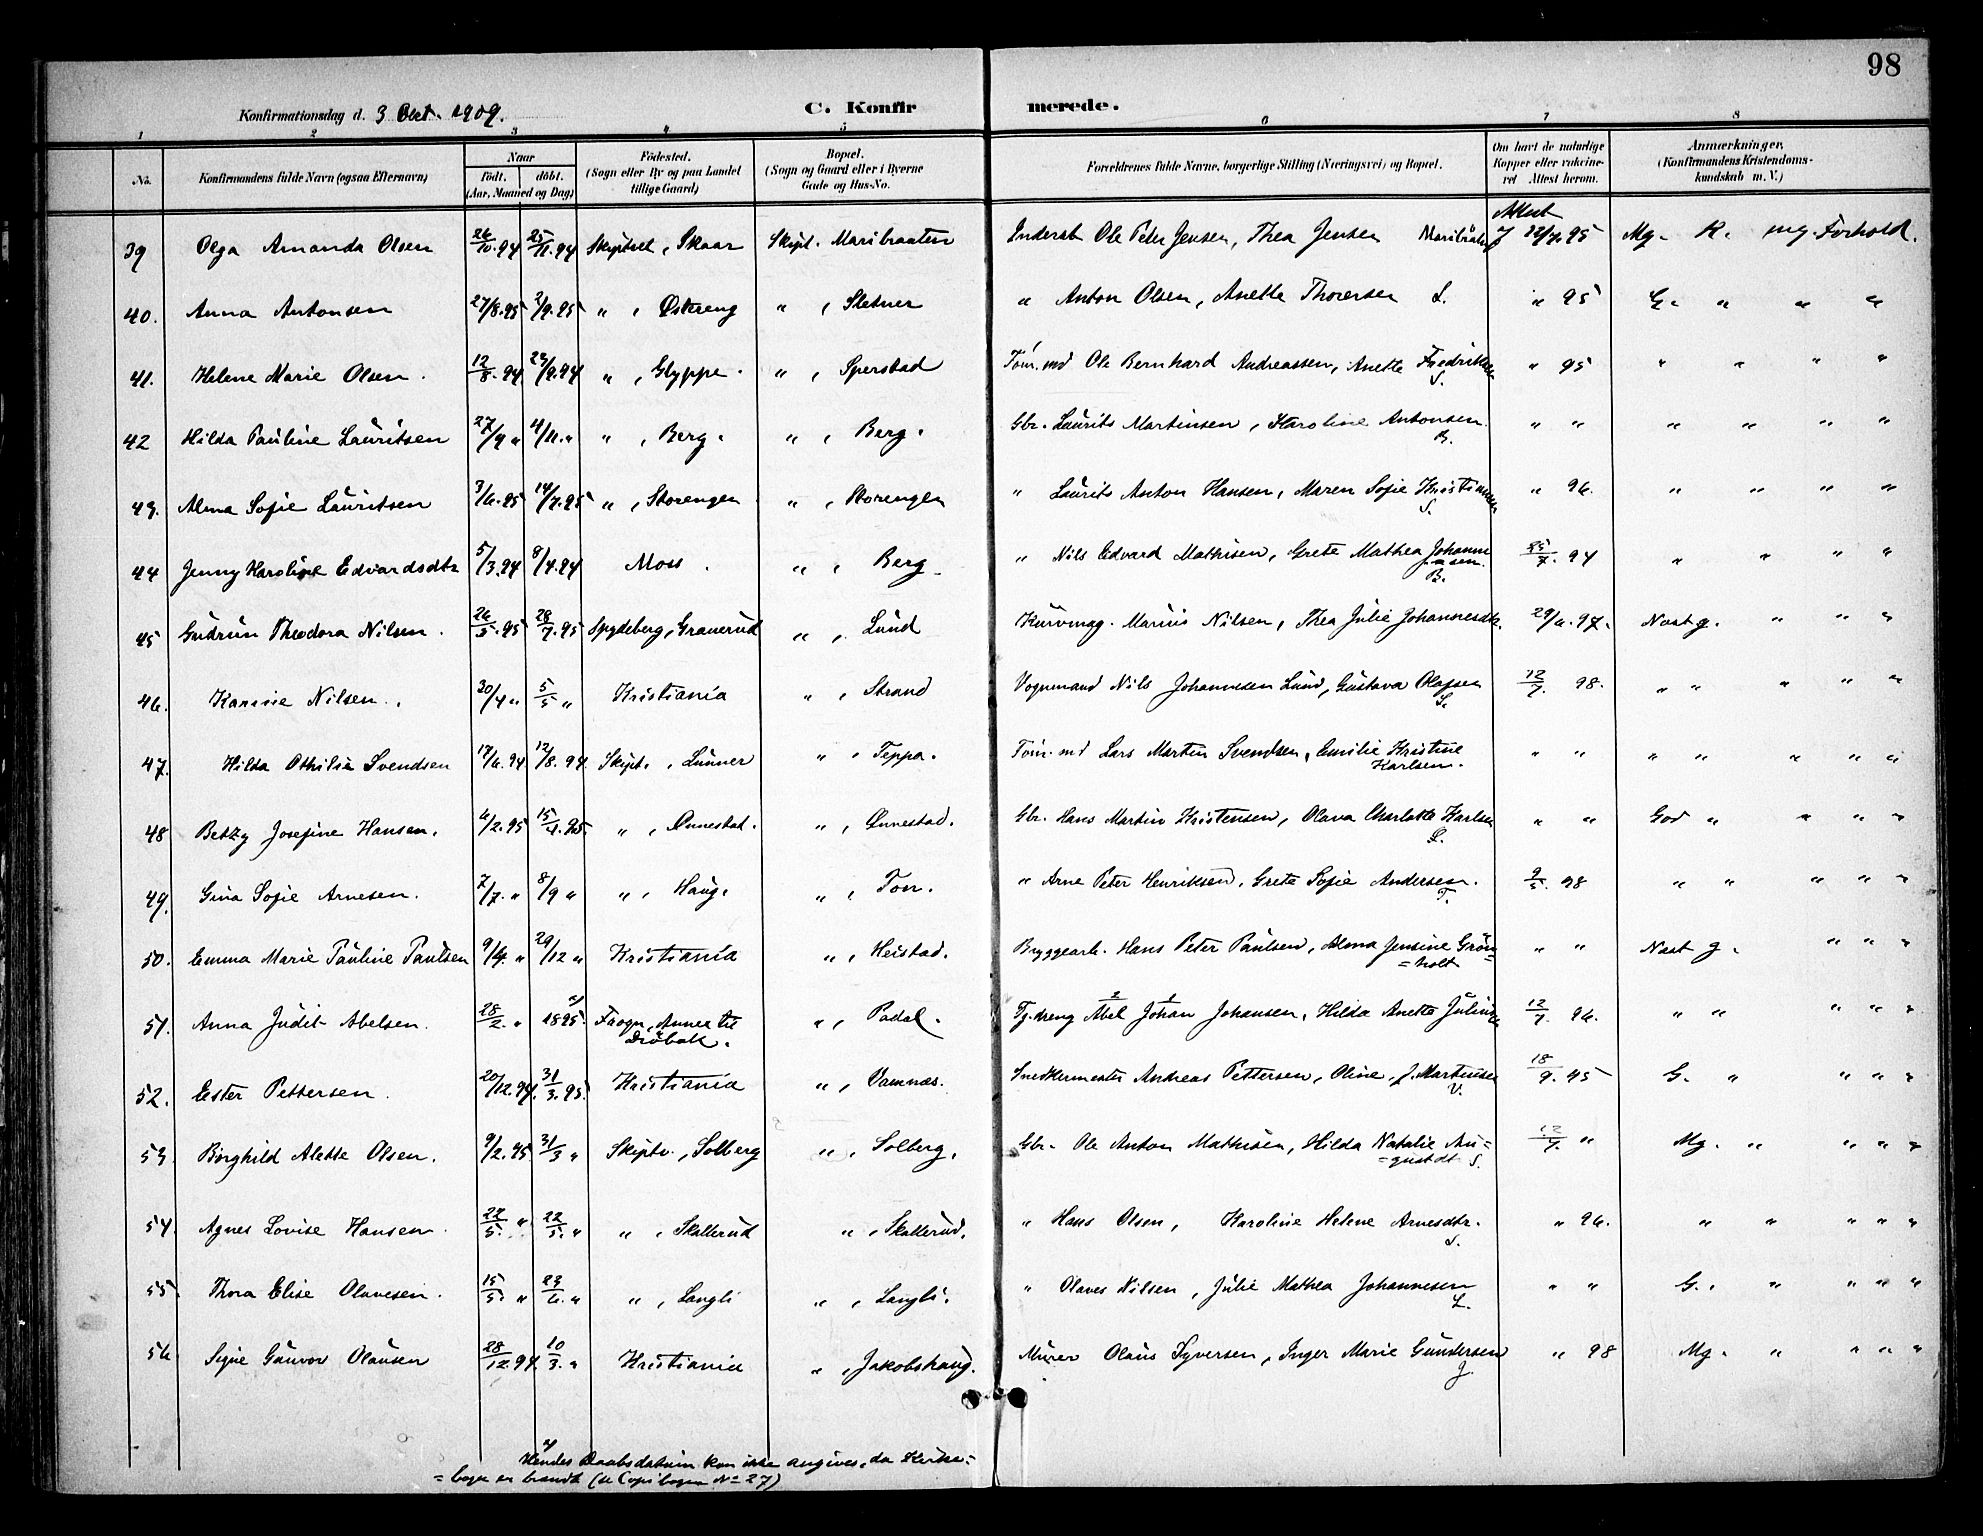 98
Konfirmationsdag d. 3 Oct. 1909.
C. Konfirmerede.
1 2 3 4 5 6 7 8
No. Konfirmandens fulde Navn (ogsaa Efternavn) Naar født. døbt. (Aar, Maaned og Dag) Fødested. (Sogn eller By og paa Landet tillige Gaard) Bopæl. (Sogn og Gaard eller i Byerne Gade og Hus-No. Forældrenes fulde Navne, borgerlige Stilling (Næringsvei) og Bopæl. Om havt de naturlige Kopper eller vaccineret Attest herom. Anmærkninger, (Konfirmandens Kristendomskundskab m. V.)
39 Olga Amanda Olsen 26/10.94 25/11.94 Skiptvet, Skaar Skipt. Maribraaten Inderst Ole Peter Jensen, Thea Jensen Maribråten Attest 95 Mg. K. mg. Forhold.
40. Anna Antonsen 27/8.95 2/9.95 " , Østereng " , Sletner " Anton Olsen, Anette Thoresen S. " 95 G. " " "
41. Helene Marie Olsen. 12/8.94 29/9.94 " , Glyppe. " , Sperstad Tøm.md Ole Bernhard Andreassen, Anette Fredriksen S. " 95 " " " "
42 Hilda Pauline Lauritsen 27/9 " 4/11." " , Berg. " , Berg. Gbr. Laurits Martinsen, Karoline Antonsen. B. " " " " " "
43. Alma Sofie Lauritsen 3/6.95 14/7.95 " , Storengen " , Storengen " Laurits Anton Hansen, Maren Sofie Kristiansen S. " 96. " " " "
44 Jenny Karoline Edvardsdtr 5/3.94 8/4.94 Moss. " , Berg. " Nils Edvard Mathisen, Grete Mathea Johannesen. B. 25/7. 94 " " " "
45 Gudrun Theodora Nilsen. 26/5.95 28/7.95 Spydeberg, Granerud " , Lund Kurvmag. Marius Nilsen, Thea Julie Johannesdtr. 29/6.97. Næst g. " " "
46. Karinie Nilsen. 30/4 " 5/5 " Kristiania " , Strand Vognmand Nils Johannesen Lund, Gustava Olafsen S. 12/7. 98. " " " " "
47. Hilda Othilie Svendsen 17/6.94 12/8.94 Skipt., Lunner " , Teppa. Tøm.md Lars Martin Svendsen, Emilie Kristine Karlsen. " " " " " " "
48 Betzy Josefine Hansen. 6/2.95 15/4.95 " , Ønnestad. " , Ønnestad. Gbr. Hans Martin Kristensen, Olava Charlotte Karlsen " " God " " " "
49. Gina Sofie Arnesen. 7/7. " 8/9 " " , Haug. " , Ton. " Arne Peter Henriksen, Grete Sofie Andersen. T. 9/5. 98 " " " " "
50. Emma Marie Pauline Paulsen 9/4. " 29/12 " Kristiania " , Heistad. Bryggearb. Hans Peter Paulsen, Alma Jensine Grøn= =holt " " Næst g. " " "
51. Anna Judit Abelsen. 28/2. " 1895. Frogn, Annex til Drøbak. " , Padal. Tj.dreng Abel Johan Johansen, Hilda Anette 12/7. 96. " " " " "
52. Ester Pettersen. 20/12.94. 31/3.95. Kristiania " , Vamnæs. Snedkermester Andreas Pettersen, Oline J. Martinsen V. 18/9.95 G. " " " "
53. Borghild Alette Olsen. 9/2.95 31/3 " Skiptv., Solberg " , Solberg. Gbr. Ole Anton Mathisen, Hilda Natalie Au= =gustdt. S. 12/7. " Mg. " " " "
54. Agnes Lovise Hansen. 22/5. " 22/5. " " , Skallerud " , Skallerud. " Hans Olsen, Karoline Helene Arnesdtr. S. " 96. " " " " "
55 Thora Elise Olavesen. 15/5. " 23/6. " " , Langli " , Langli. " Olaves Nilsen, Julie Mathea Johannesen L. " " G. " " " "
56 Signe Gunvor Olausen 28/12.94. 10/3. " Kristiania " , Jakobshaug. Murer Olaus Syversen, Inger Marie Gundersen J. " 98 Mg. " " " "
Hendes Daabsdatum kan ikke angives, da Kirke=
=bogen er brændt (se Copibogen No 27)